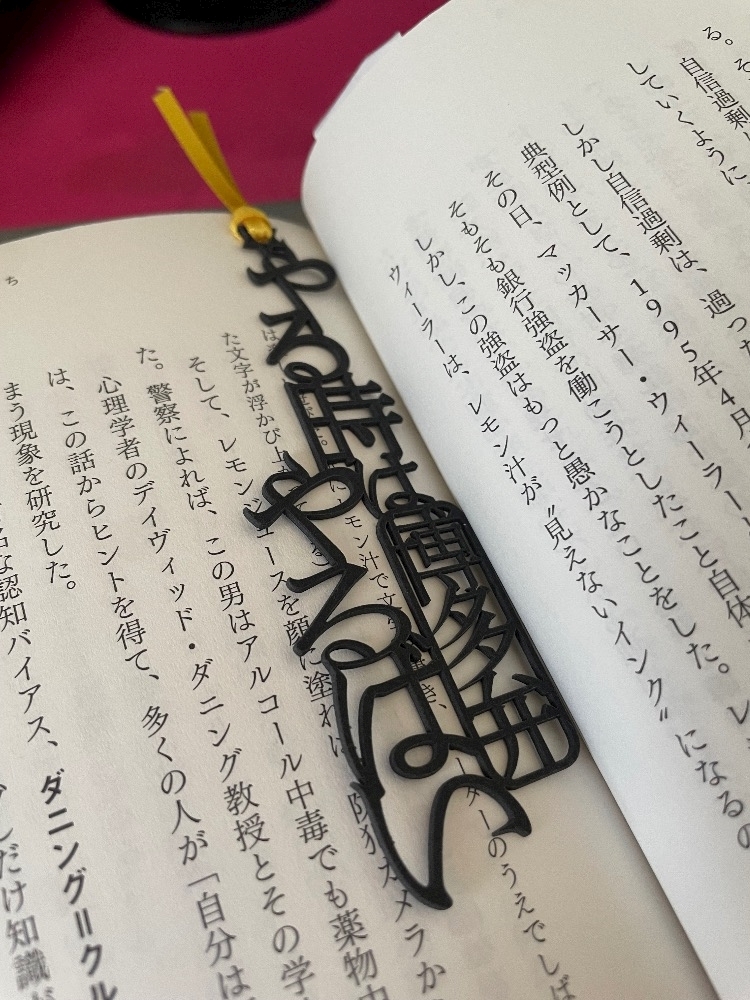 る。そ
自信過剰
していくように
しかし自信過剰は、過った
典型例として、1995年4月
その日、マッカーサー・ウィーラー
そもそも銀行強盗を働こうとしたこと自体
しかし、この強盗はもっと愚かなことをした。レ
ウィーラーは、レモン汁が〝見えないインク〟になるの
やる時は
やるばい
博多弁
ーターのうえでしば
レモン汁で文
た文字が浮かび上
そして、レモンジュースを顔に塗れば、防犯カメラか
た。警察によれば、この男はアルコール中毒でも薬物中
心理学者のディヴィッド・ダニング教授とその学
は、この話からヒントを得て、多くの人が「自分は
まう現象を研究した。
名な認知バイアス、ダニング=クル
だけ知識が
ち